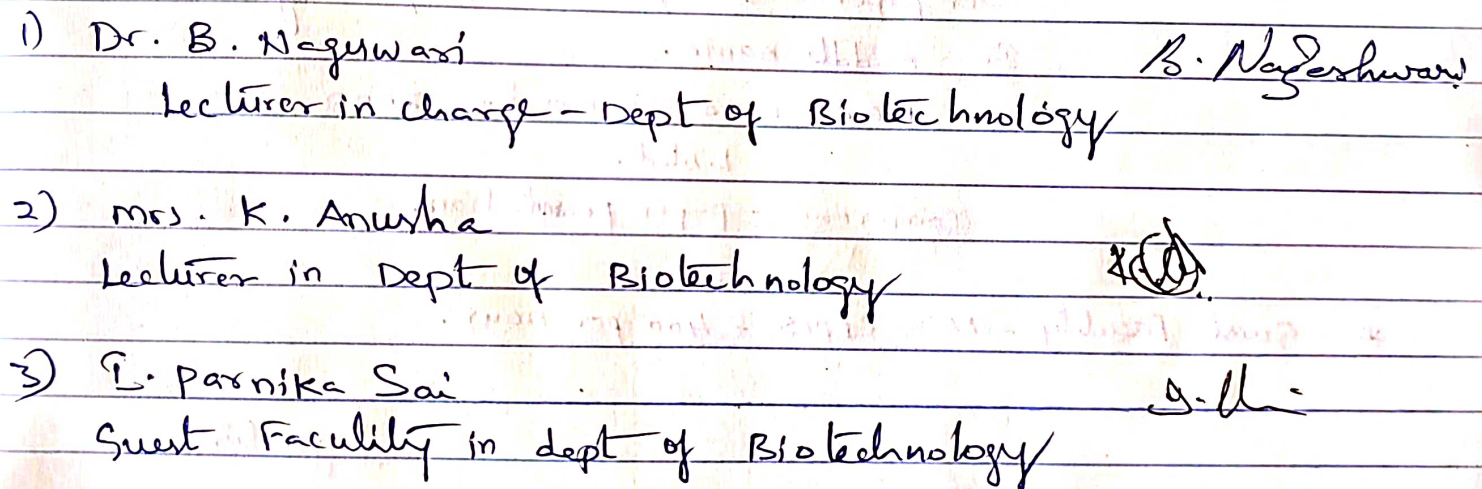 1) Dr. B. Nageswari B. Nageshwari
Lecturer in charge - Dept of Biotechnology
2) Mrs. K. Anusha
Lecturer in Dept of Biotechnology
3) Parnika Sai
Guest Faculity in dept of Biotechnology